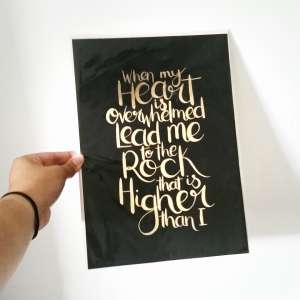 When my
Heart
is
overwhelmed
Lead me
to the
Rock
that is
Higher
than I